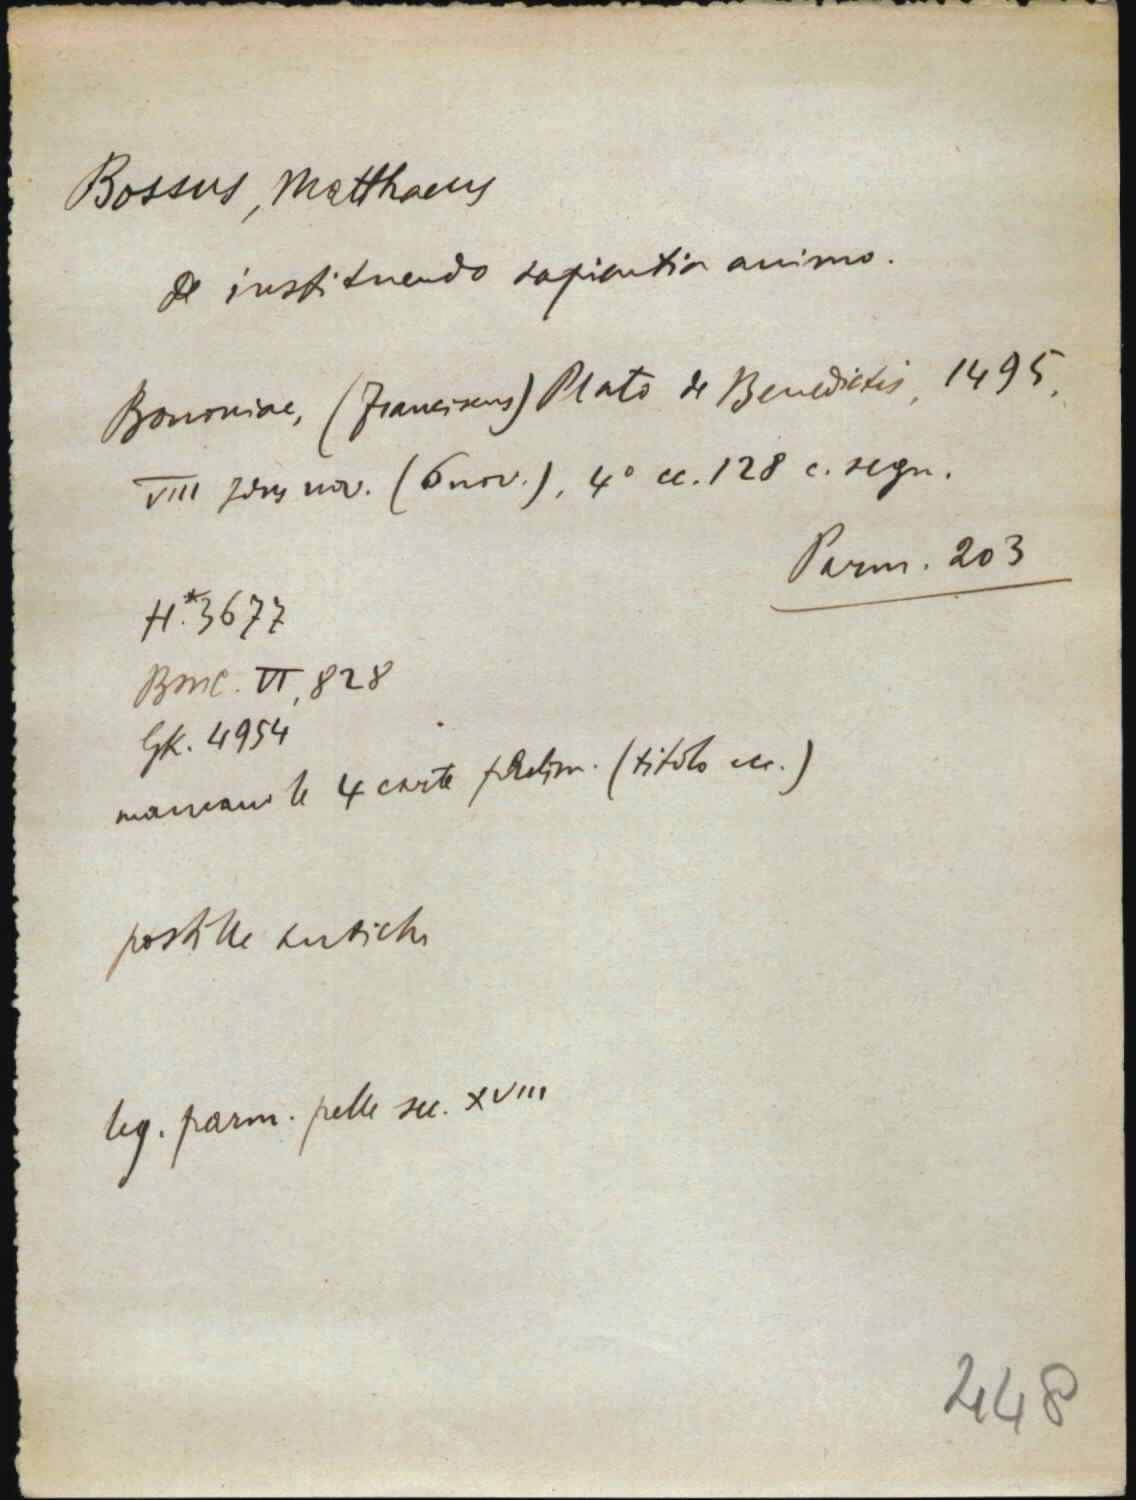 Bossus, Matthaeus
de instituendo sapientia animo.
Bononiae, (Franciscus) Plato de Benedictis, 1495,
VIII idus nov. (6 nov.), 4° cc. 128 c. segn.
Parm. 203
H.*3677
BMC. VI, 828
GK. 4954
mancano le 4 carte prelim. (titolo ecc.)
postille antiche
leg. parm. pelle sec. XVIII
248